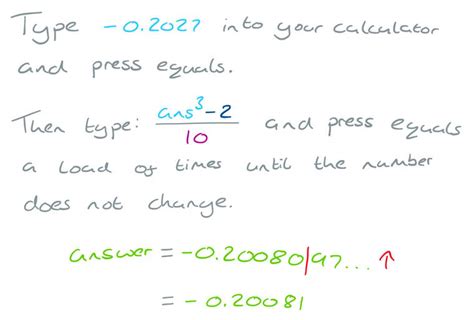 Type -0.2027 into your calculator
and press equals.
Then type: ans³-2/10 and press equals
a load of times until the number
does not change.
answer = -0.20080|97... ↑
= -0.20081